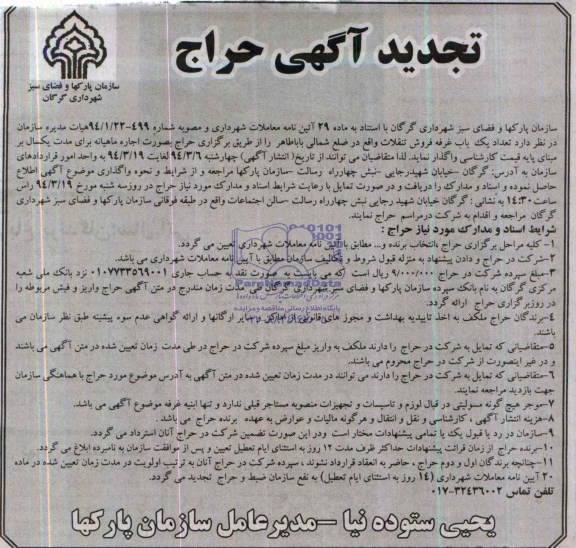 تجدید آگهی حراج
سازمان پارکها و فضای سبز
شهرداری گرگان
سازمان پارکها و فضای سبز شهرداری گرگان با استناد به ماده ۲۹ آئین نامه معاملات شهرداری و مصوبه شماره ۴۹۹-۹۴/۱/۲۲هیات مدیره سازمان
در نظر دارد تعداد یک باب غرفه فروش تنقلات واقع در ضلع شمالی باباطاهر را از طریق برگزاری حراج بصورت اجاره ماهیانه برای مدت یکسال بر
مبنای پایه قیمت کارشناسی واگذار نماید. لذا متقاضیان می توانند از تاریخ( انتشار آگهی) چهارشنبه ۹۴/۳/۶ لغایت ۹۴/۳/۱۹ به واحد امور قراردادهای
سازمان به آدرس: گرگان -خیابان شهیدرجایی -نبش چهارراه رسالت -سازمان پارکها مراجعه و از شرایط و نحوه واگذاری موضوع آگهی اطلاع
حاصل نموده و اسناد و مدارک را دریافت و در صورت تمایل با رعایت شرایط اسناد و مدارک مورد نیاز حراج در روزسه شنبه مورخ ۹۴/۳/۱۹ راس
ساعت ۱۴:۳۰ به نشانی : گرگان خیابان شهید رجایی نبش چهارراه رسالت -سالن اجتماعات واقع در طبقه فوقانی سازمان پارکها و فضای سبز شهرداری
گرگان مراجعه و اقدام به شرکت درمراسم حراج نمایند.
شرایط اسناد و مدارک مورد نیاز حراج :
۱- کلیه مراحل برگزاری حراج ،انتخاب برنده و... مطابق با آئین نامه معاملات شهرداری تعیین می گردد.
۲-شرکت در حراج و دادن پیشنهاد به منزله قبول شروط و تکالیف سازمان مطابق با آیین نامه معاملات شهرداری می باشد.
۳-مبلغ سپرده شرکت در حراج ۹/۰۰۰/۰۰۰ ریال است که می بایست به صورت نقد به حساب جاری ۰۱۰۷۷۳۳۵۶۹۰۰۱ نزد بانک ملی شعبه
مرکزی گرگان به نام بانکه سپرده سازمان پارکها و فضای سبز شهرداری گرگان طی مدت زمان مندرج در متن آگهی حراج واریز و فیش مربوطه را
در روزبرگزاری حراج ارائه گردد.
۴-برندگان حراج ملکف به اخذ تاییدیه بهداشت و مجوز های قانونی از اماکن و سایر ارگانها و ارائه گواهی عدم سوء پیشینه طبق نظر سازمان می
باشند.
۵-متقاضیانی که تمایل به شرکت در حراج را دارند ملکف به واریز مبلغ سپرده شرکت در حراج در طی مدت زمان تعیین شده در متن آگهی می باشند
و در غیر اینصورت از شرکت در حراج محروم می باشند.
۶-متقاضیانی که تمایل به شرکت در حراج را دارند می توانند در مدت زمان تعیین شده در متن آگهی به آدرس موضوع مورد حراج با هماهنگی سازمان
جهت بازدید مراجعه نمایند.
۷-موجر هیچ گونه مسولیتی در قبال لوزم و تاسیسات و تجهیزات منصوبه مستاجر قبلی ندارد و تنها ابنیه غرفه موضوع آگهی می باشد.
۸-هزینه انتشار آگهی ، کارشناسی و نقل و انتقال و هرگونه مالیات و عوارض به عهده برنده حراج می باشد .
۹-سازمان در رد یا قبول یک یا تمامی پیشنهادات مختار است ودر این صورت تضمین شرکت در حراج آنان استرداد می گردد.
۱۰-برنده حراج از زمان قرائت پیشنهادات حداکثر ظرف مدت ۱۲ روز به استثنای ایام تعطیل تعیین و پس از موافقت سازمان به نامبرده ابلاغ می گردد.
۱۱-چنانچه برندگان اول و دوم حراج ، حاضر به انعقاد قرارداد نشوند ، سپرده شرکت در حراج آنان به ترتیب اولویت در مدت زمان تعیین شده در ماده
۲۰ آیین نامه معاملات شهرداری (۱۴ روز به استثنای ایام تعطیل) به نفع سازمان ضبط و حراج تجدید می گردد.
تلفن تماس ۳۲۴۳۶۰۰۲-۰۱۷
یحیی ستوده نیا -مدیرعامل سازمان پارکها
ParsNamadData
پایگاه اطلاع رسانی مناقصه و مزایده